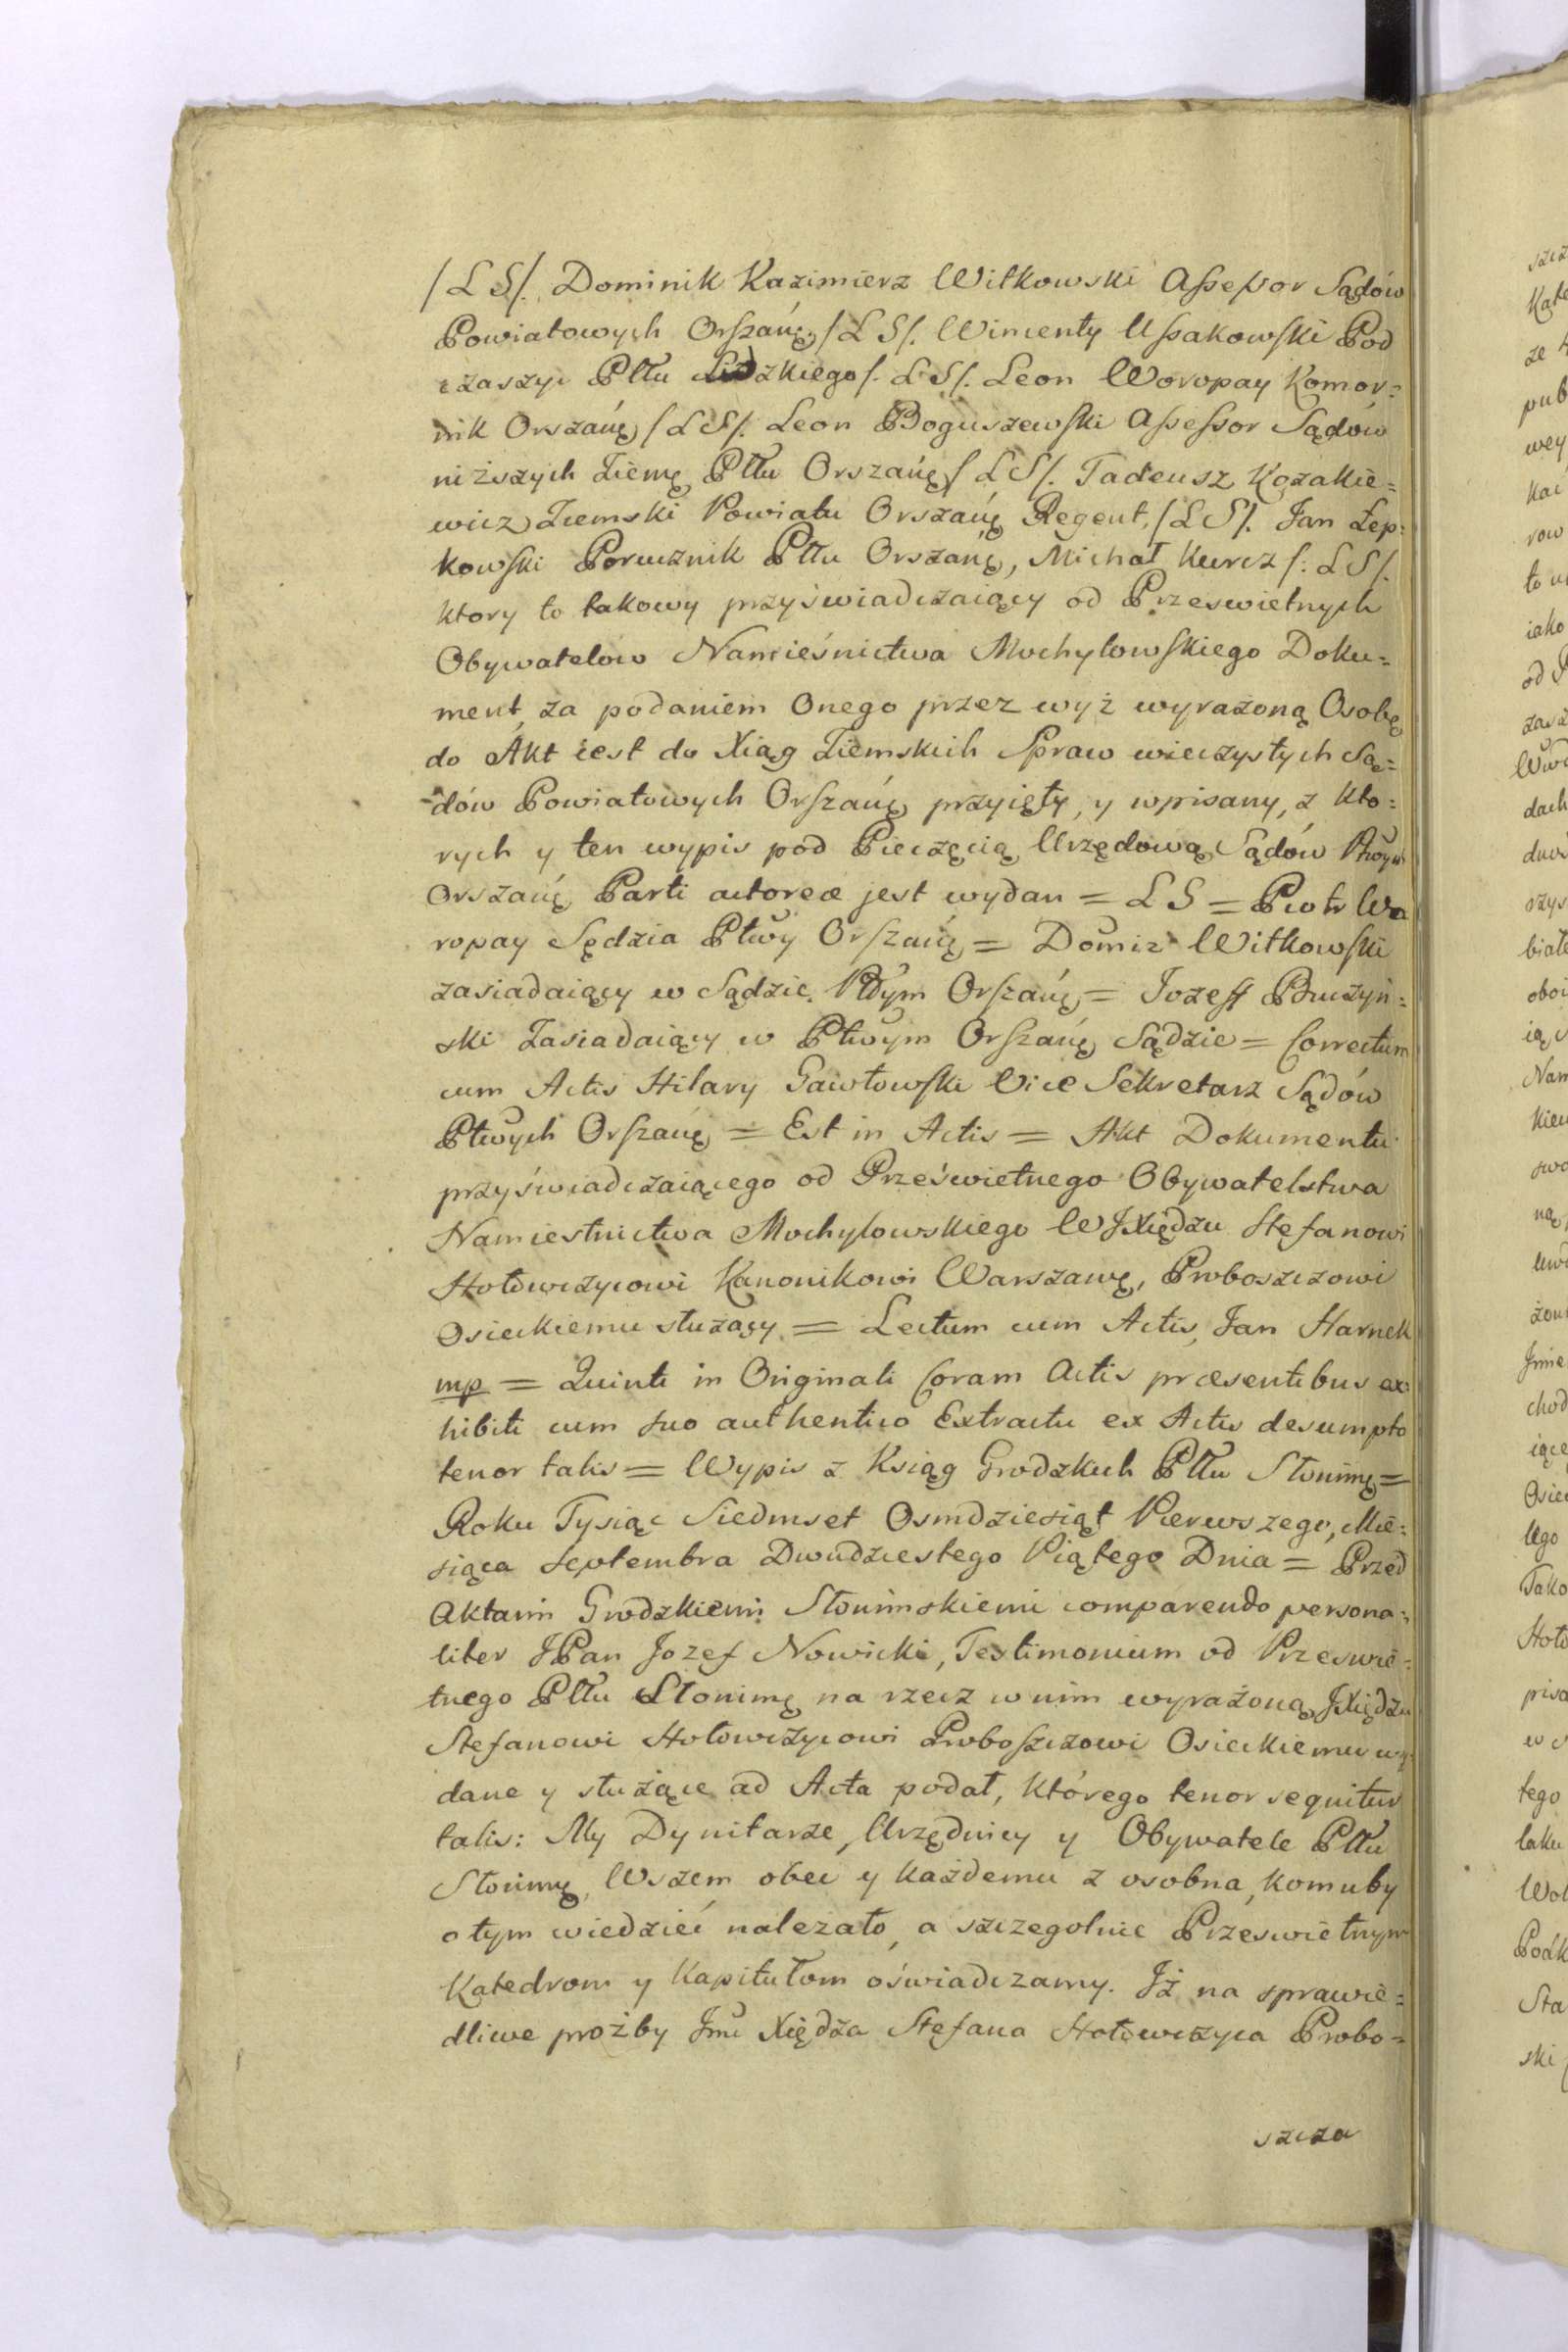 /LS/. Dominik Kazimierz Witkowski Assessor Sądów
Powiatowych Orszańg. /LS/. Wincenty Ussakowski Pod
czaszyc Pttu Lidzkiego /. LS/. Leon Woropay Komor=
nik Orszańg /LS/. Leon Boguszewski Assessor Sądów
niższych Ziemg Pttu Orszańg /LS/. Tadeusz Kozakie=
wicz Ziemski Powiatu Orszańg Regent, /LS/. Jan Łep=
kowski Porucznik Pttu Orszańg, Michał Kurcz /: LS/.
ktory to takowy przyświadczaiący od Przeswietnych
Obywatelow Namieśnictwa Mochylowskiego Doku=
ment, za podaniem Onego przez wyż wyrażoną Osobę
do Akt iest do Xiąg Ziemskich Spraw wieczystych Są=
dów Powiatowych Orszańg przyięty, y wpisany, z kto=
rych y ten wypis pod Pieczęcią Urzędową Sądów Ptwych
Orszańg Parti actoreæ jest wydan = LS = Piotr Wo
ropay Sędzia Ptwy Orszańg = Domiz Witkowski
zasiadaiący w Sądzie Ptwym Orszańg = Jozeff Bruzyń=
ski Zasiadaiący w Ptwym Orszańg Sądzie = Correctum
cum Actis Hilary Gawłowski Vice Sekretarz Sądów
Ptwych Orszańg = Est in Actis = Akt Dokumentu
przyświadczaiącego od Prześwietnego Obywatelstwa
Namiestnictwa Mochylowskiego WJXiędzu Stefanowi
Hołowczycowi Kanonikowi Warszawg, Proboszczowi
Osieckiemu służący = Lectum cum Actis, Jan Harnek
mp = Quinti in Originali Coram Actis præsentibus ex=
hibiti cum suo authentico Extractu ex Actis desumpto
tenor talis = Wypis z Ksiąg Grodzkich Pttu Słonimg =
Roku Tysiąc Siedmset Osmdziesiąt Pierwszego, Mie=
siąca Septembra Dwudziestego Piątego Dnia = Przed
Aktami Grodzkiemi Słonimskiemi comparendo persona=
liter JPan Jozef Nowicki, Testimonium od Przeswie=
tnego Pttu Słonimg na rzecz w nim wyrażoną JXiędzu
Stefanowi Hołowczycowi Proboszczowi Osieckiemu wy=
dane y służące ad Acta podał, którego tenor sequitur
talis: My Dynitarze, Urzędnicy y Obywatele Pttu
Słonimg, Wszem obec y każdemu z osobna, komuby
o tym wiedzieć nalezało, a szczegolnie Przeswietnym
Katedrom y Kapitułom oświadczamy. Jż na sprawie=
dliwe proźby Jmć Xiędza Stefana Hołowczyca Probo=
szcza